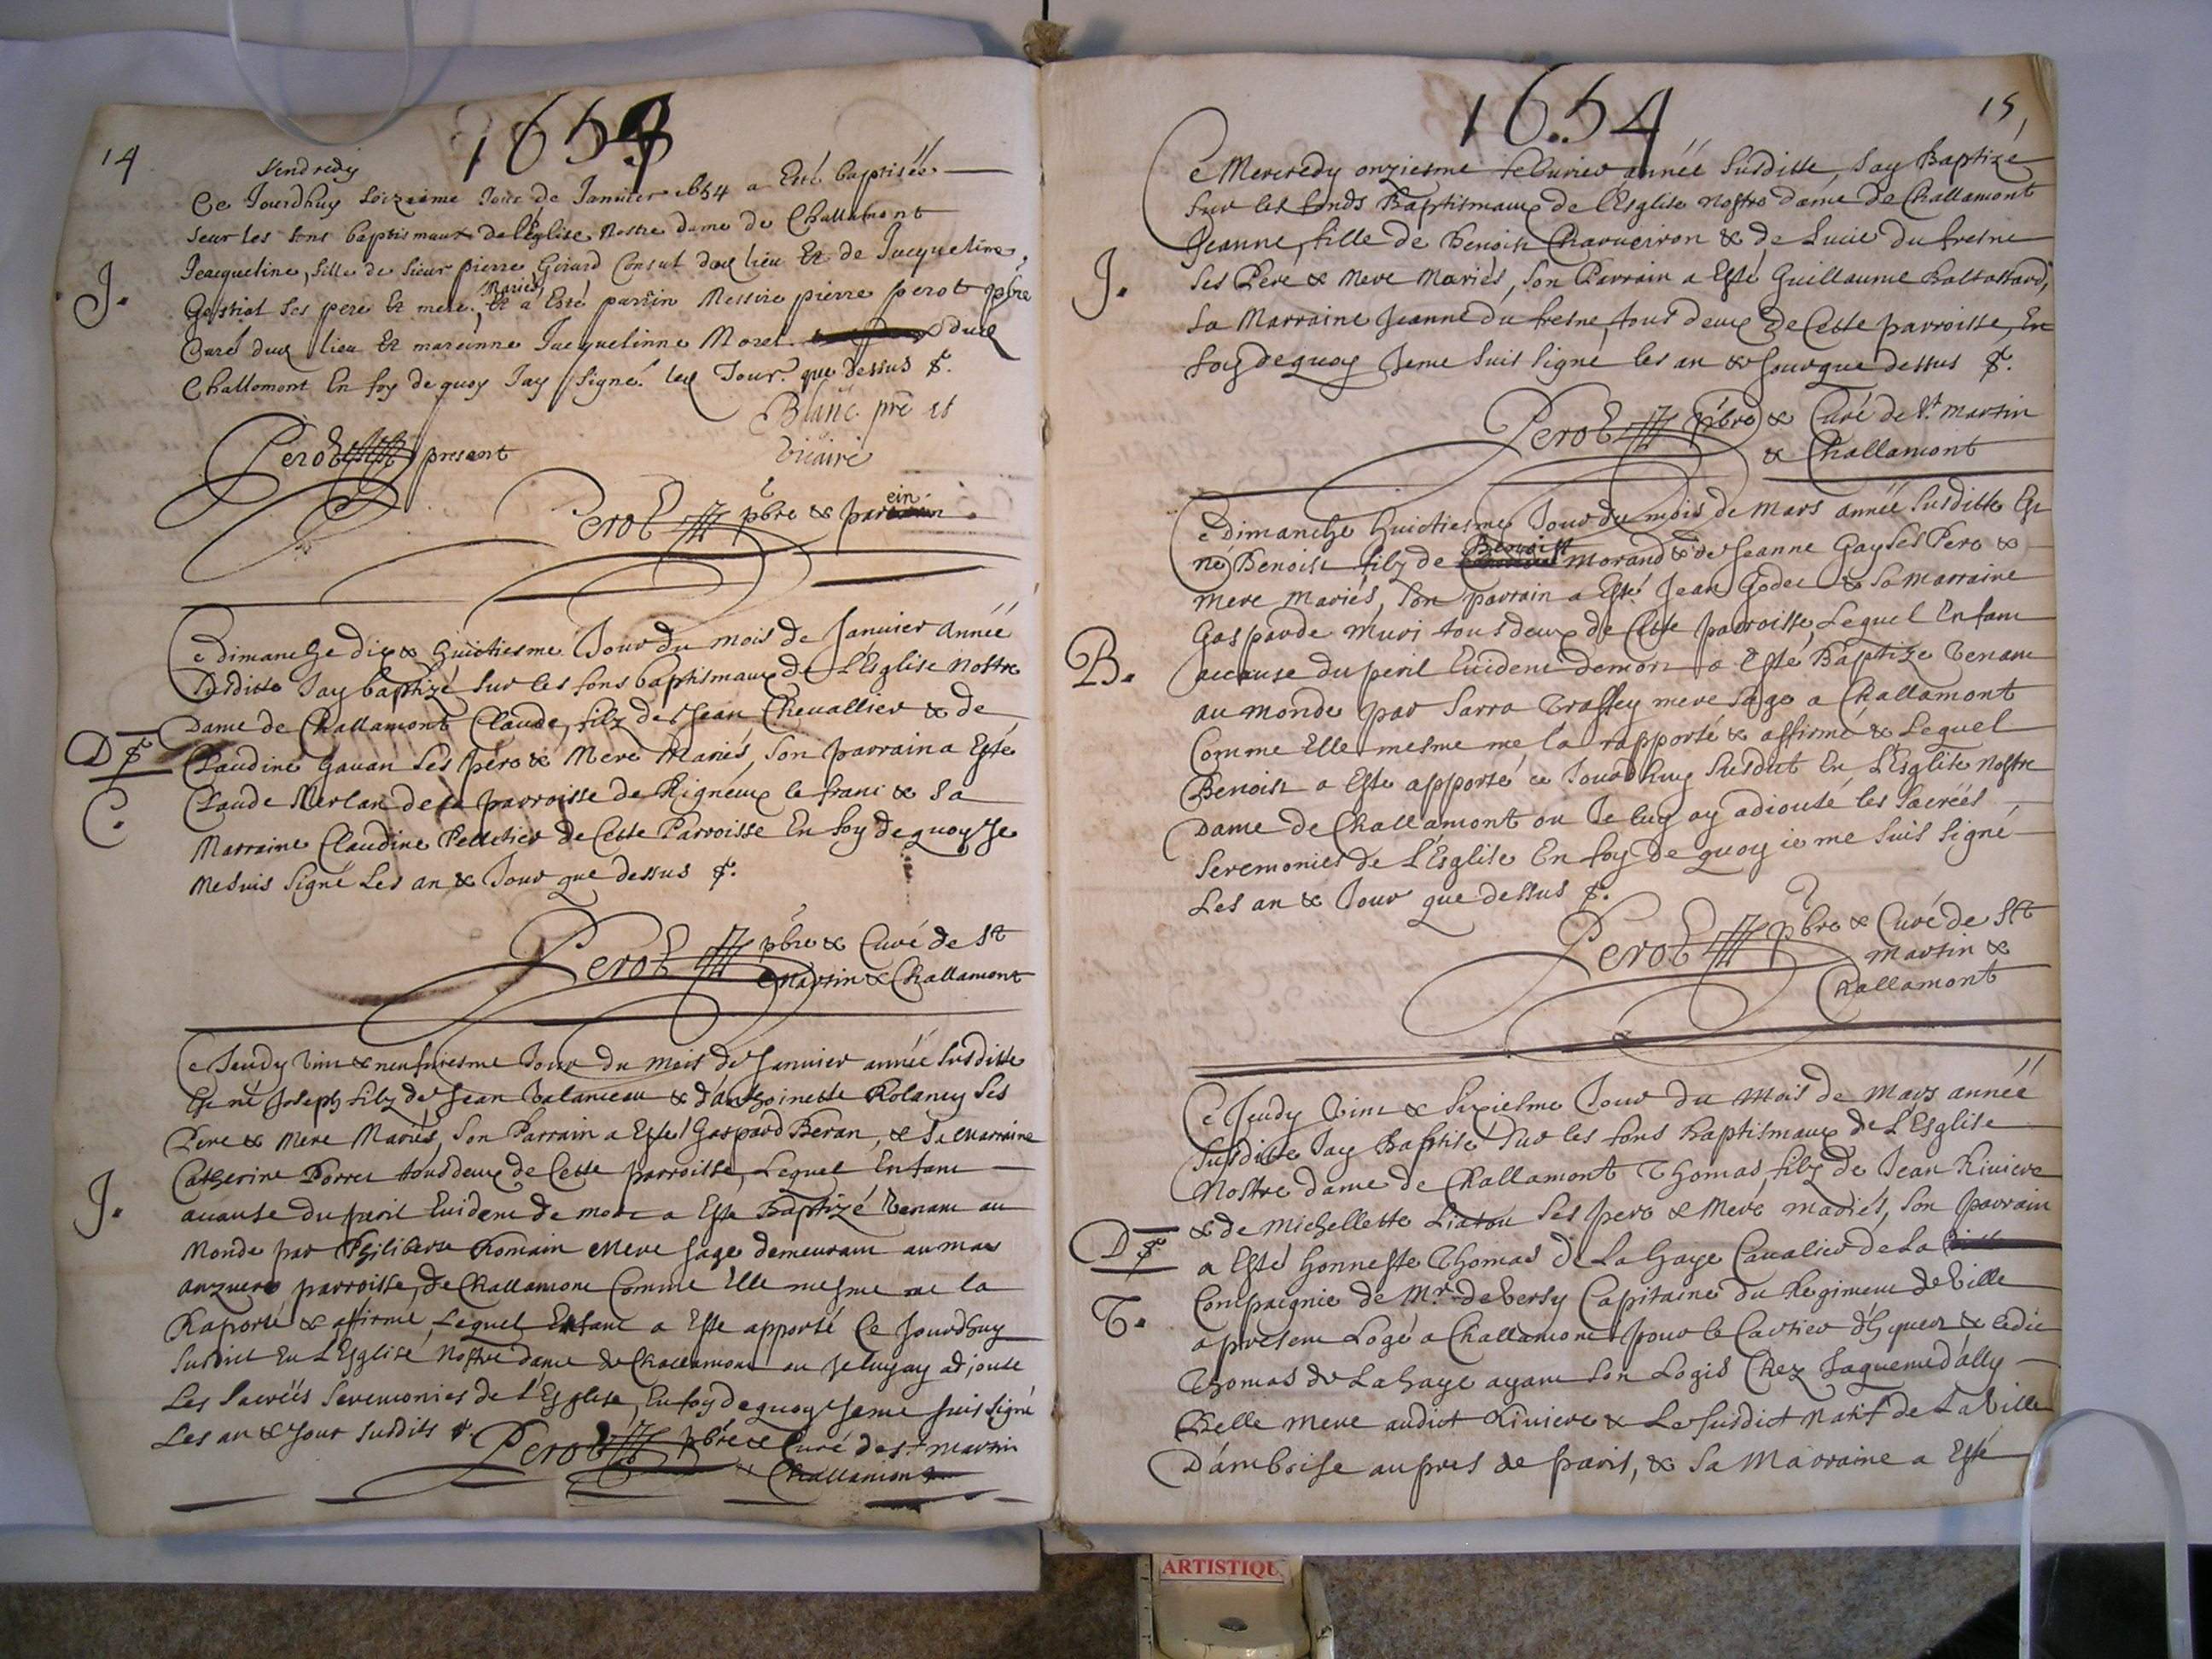 14
1654
Vendredy
Ce Jourdhuy Seizieme Jour de Janvier 1654 a Esté baptisée
Seur les fons baptismaux de léglise Nostre dame de Challamont
Jeacqueline, fille de Sieur pierre Girard Consul dud lieu Et de Jacqueline
ses pere Et mere Mariés, Et a Esté parrin Messire pierre perot pbre
Curé dud lieu Et mareinne Jacquelinne Morel dud
Challomont En foy de quoy Jay signé led Jour que dessus
J.
Blanc pre et
vicaire
Perot present
Perot pbre & parein
Ce dimanche dix & huictiesme Jour du mois de Januier année
Susditte Jay baptizé sur les fons baptismaux de L'Esglise Nostre
Dame de Challamont Claude, filz de Jean Cheuallier & de
Claudine Gauan ses pere & Mere Mariés, son parrain a Esté
Claude Merlan de la parroisse de Rigneux le franc & sa
Marraine Claudine Pelletier de Cette Parroisse En foy de quoy Je
me suis signé Les an & Jour que dessus
D
C.
Perot pbre & Curé de St
Martin & Challamont
Ce Jeudy vint & neufuiesme Jour du mois de Januier année susditte
Est né Joseph filz de Jean & d'anthoinette Rolancy ses
Pere & Mere Mariés, son Parrain a Esté Gaspard Beran, & sa Marraine
Catherine Porret tous deux de Cette parroisse, Lequel Enfant
acause du peril Euident de mort a Esté Baptizé Venant au
Monde par Philiberte Romain Mere sage demeurant au mas
parroisse de Challamont Comme Elle mesme me la
Raporté & affirmé, Lequel Enfant a Esté apporté Ce Jourdhuy
Susdict En L'Esglise Nostre dame de Challamont ou Je luy ay adjouté
Les Sacréés Seremonies de L'Esglise, En foy de quoy Je me suis signé
Les an & Jour susdits
J.
Perot pbre & Curé de St martin
& Challamont
15
1654
Ce Mercredy onziesme feburier année susditte, Jay Baptizé
Sur les fonds Baptismaux de l'Esglise nostre dame de Challamont
Jeanne, fille de Benoist Charveiron & de Lucie du fresne
ses Pere & Mere Mariés, son Parrain a Esté Guillaume
Sa Marraine Jeanne du fresne tous deux de Cette parroisse, En
foy de quoy Je me suis signé les an & Jour que dessus
J.
Perot pbre & Curé de St. Martin
& Challamont
Ce dimanche huictiesme Jour du mois de Mars année susditte Est
né Benoist filz de Benoist Morand & de Jeanne Gay ses Pere &
mere mariés, son parrain a Esté Jean Godet & sa marraine
Gasparde Muri tous deux de Cette parroisse, Lequel Enfant
acause du peril Euident de mort a Esté Baptize Venant
au monde par Sarra Trassey mere sage a Challamont
Comme Elle mesme me la rapporté & affirmé & Lequel
Benoist a Esté apporté ce Jourdhuy Susdict En L'Esglise Nostre
Dame de Challamont ou Je luy ay adiouté les Sacréés
Seremonies de L'Esglise En foy de quoy ie me suis signé
Les an & Jour que dessus
B.
Perot pbre & Curé de St
Martin &
Challamont
Ce Jeudy Vint & Sixiesme Jour du Mois de Mars année
Susditte Jay Baptisé sur les fons baptismaux de L'Esglise
Nostre dame de Challamont Thomas, filz de Jean Riuiere
& de Michellette Liatou ses pere & Mere mariés, son parrain
a Esté honneste Thomas de La haye Caualier de La
Compaignie de Mr. de Versy Capitaine du Regiment de Ville
apresent Logé a Challamont pour le Cartier d'hyuer & ledit
Thomas de Lahaye ayant son Logis Chez Jaqueme d'ally
Belle mere audict Riuiere & Le susdict Natif de La Ville
D'amboise aupres de paris, & sa Marraine a Esté
D
T.
ARTISTIQU